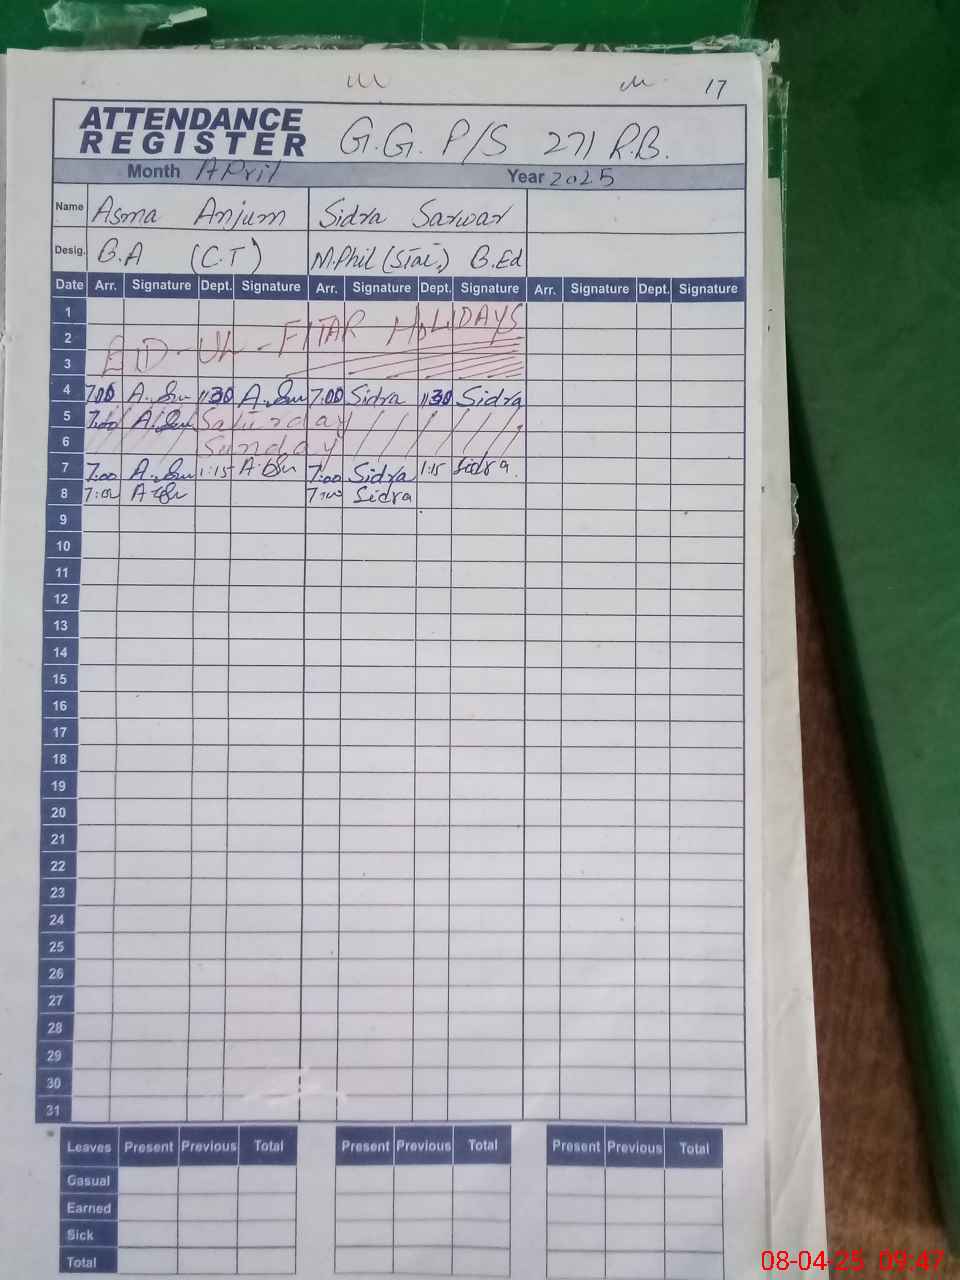 17
ATTENDANCE REGISTER G.G. P/S 271 R.B.
Month April Year 2025
Name Asma Anjum Sidra Sarwar
Desig. B.A (C.T) M.Phil B.Ed
Date Arr. Signature Dept. Signature Arr. Signature Dept. Signature Arr. Signature Dept. Signature
1
2 EID-UL-FITAR HOLIDAYS
3
4 7:00 1:30 7:00 Sidra 1:30 Sidra
5 7:00 Saturday
6 Sunday
7 7:00 1:15 7:00 Sidra 1:15 Sidra
8 7:00 7:00 Sidra
9
10
11
12
13
14
15
16
17
18
19
20
21
22
23
24
25
26
27
28
29
30
31
Leaves Present Previous Total Present Previous Total Present Previous Total
Casual
Earned
Sick
Total
08-04-25 09:47